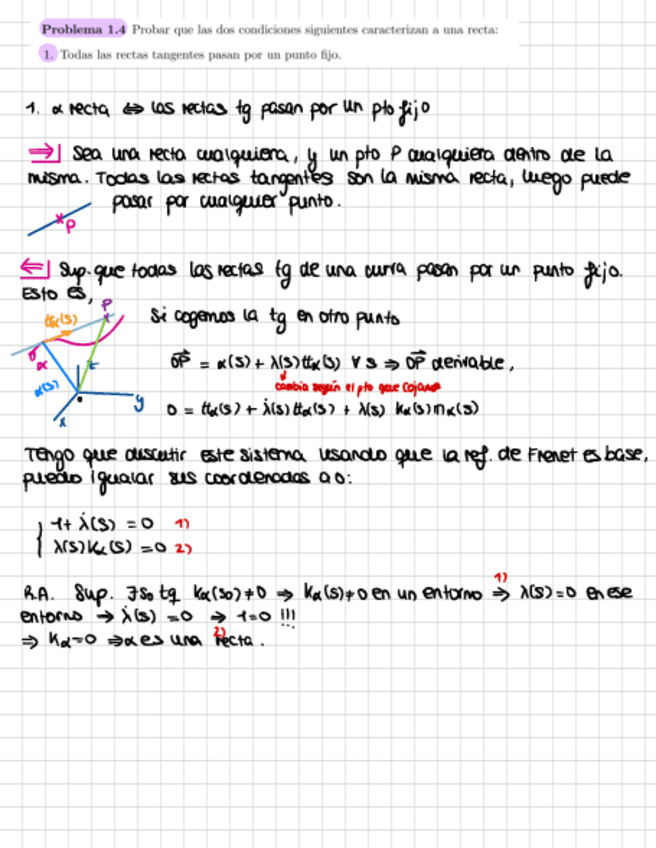 Problema 1.4 Probar que las dos condiciones siguientes caracterizan a una recta:
1. Todas las rectas tangentes pasan por un punto fijo.
1. α recta ⇔ las rectas tg pasan por un pto fijo
⇒| Sea una recta cualquiera, y un pto P cualquiera dentro de la
misma. Todas las rectas tangentes son la misma recta, luego puede
pasar por cualquier punto.
P
⇐| Sup. que todas las rectas tg de una curva pasan por un punto fijo.
Esto es,
P
tα(s)
Si cogemos la tg en otro punto
α
α(s)
z
y
x
OP = α(s) + λ(s) tα(s) ∀ s ⇒ OP derivable,
cambia según el pto que cojamos
0 = tα(s) + λ̇(s) tα(s) + λ(s) kα(s) nα(s)
Tengo que discutir este sistema usando que la ref. de Frenet es base,
puedo igualar sus coordenadas a 0:
1 + λ̇(s) = 0 1)
λ(s) kα(s) = 0 2)
R.A. Sup. ∃s₀ tq kα(s₀) ≠ 0 ⇒ kα(s) ≠ 0 en un entorno ⇒ 1) λ(s) = 0 en ese
entorno → λ̇(s) = 0 ⇒ 1 = 0 !!!
⇒ kα = 0 ⇒ 2) α es una recta.